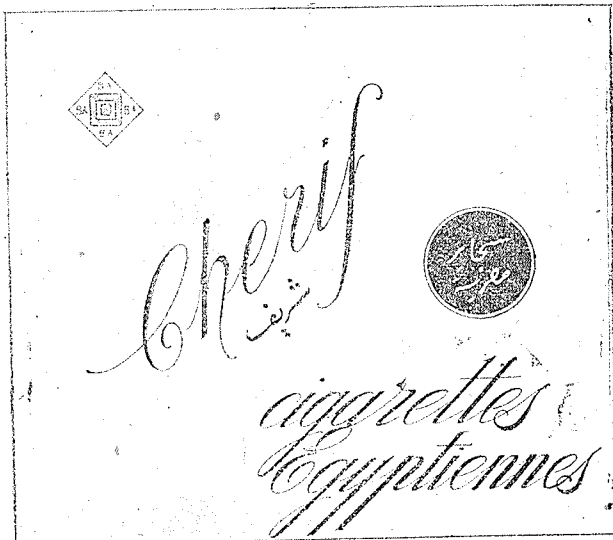 SA
SA SA
SA
Cherif
شريف
سجاير
مصرية
cigarettes
Egyptiennes